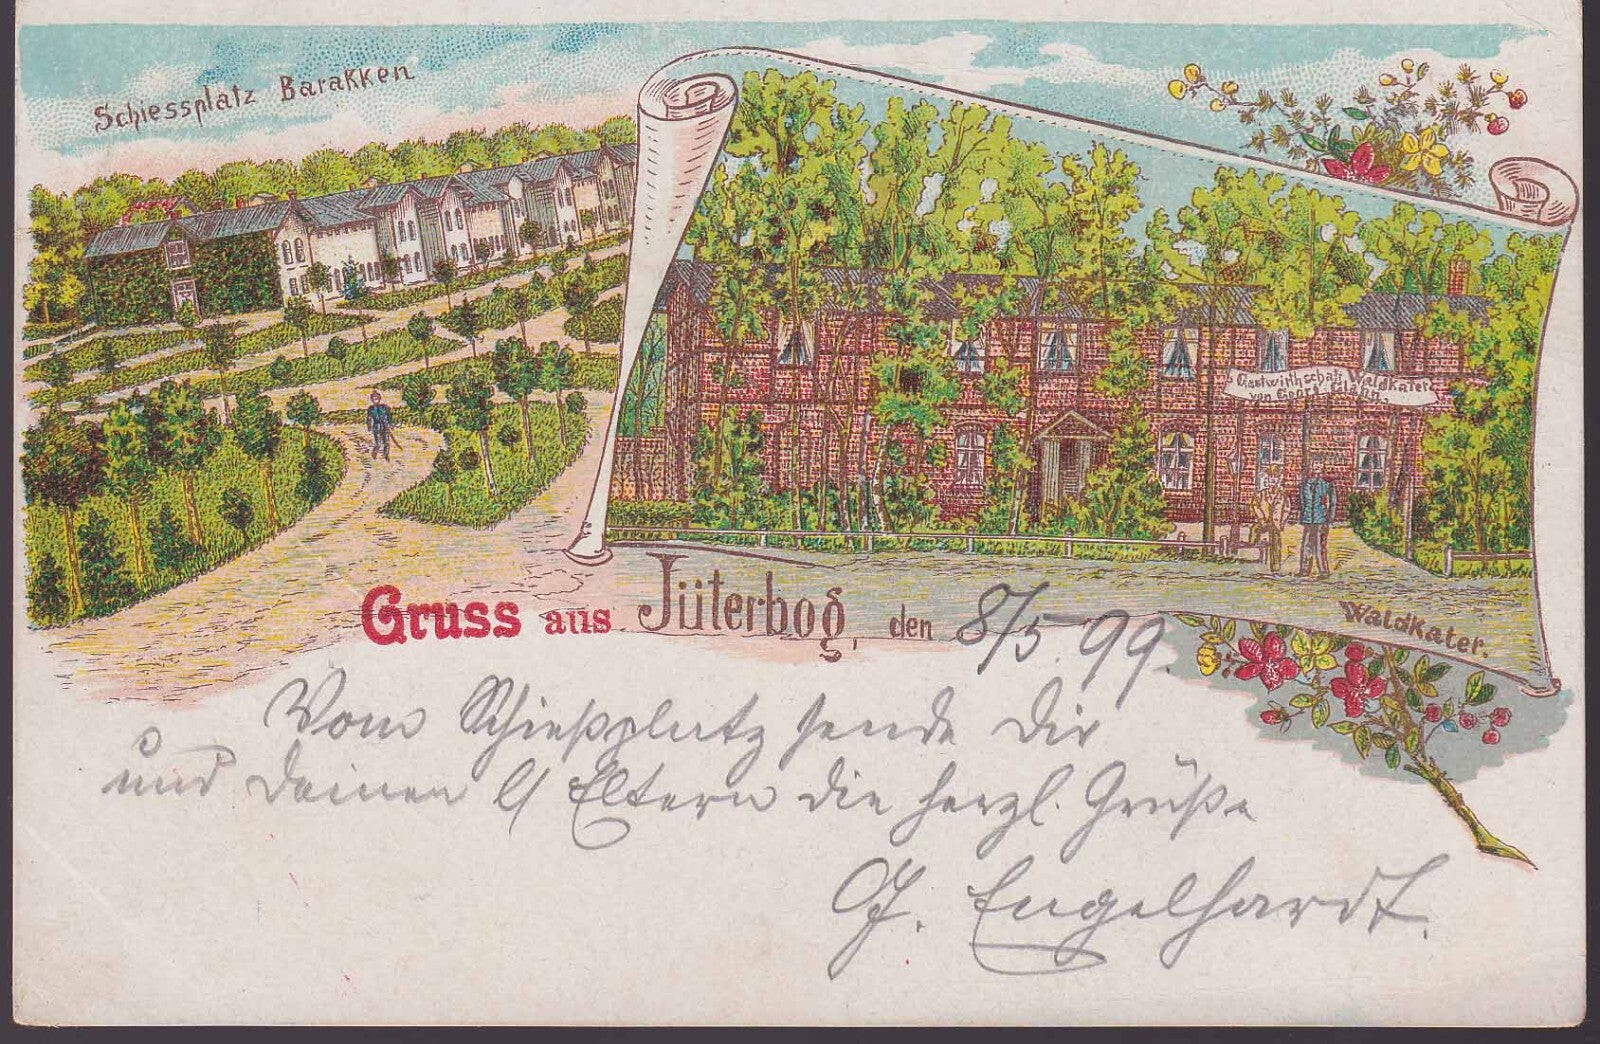 Schiessplatz Barakken
Gastwirthschaft Waldkater
von Georg
Waldkater.
Gruss aus Jüterbog, den 8/5. 99.
Vom Schießplatz sende Dir
und Deinen l/ Eltern die herzl. Grüße
J. Engelhardt.